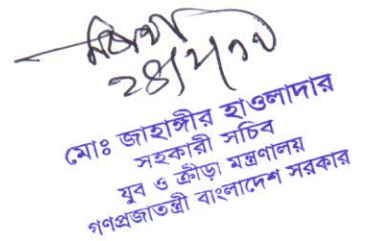 মোঃ জাহাঙ্গীর হাওলাদার
সহকারী সচিব
যুব ও ক্রীড়া মন্ত্রণালয়
গণপ্রজাতন্ত্রী বাংলাদেশ সরকার